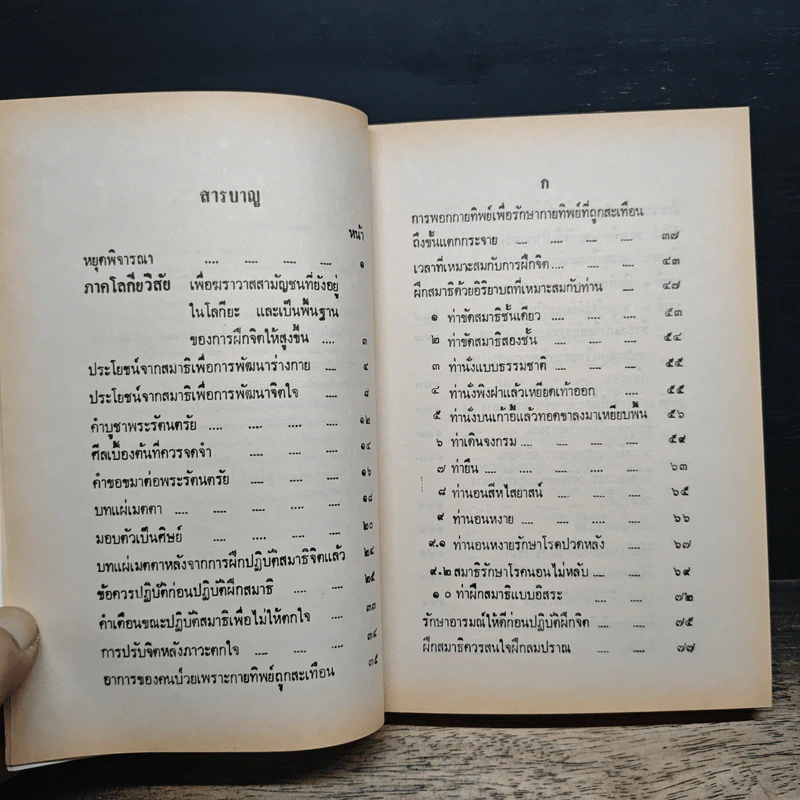 สารบาญ
หน้า
หยุดพิจารณา .... .... .... .... ๑
ภาคโลกียวิสัย เพื่อฆราวาสสามัญชนที่ยังอยู่
ในโลกียะ และเป็นพื้นฐาน
ของการฝึกจิตให้สูงขึ้น .... ๓
ประโยชน์จากสมาธิเพื่อการพัฒนาร่างกาย .... ๔
ประโยชน์จากสมาธิเพื่อการพัฒนาจิตใจ .... ๘
คำบูชาพระรัตนตรัย .... .... .... ๑๒
ศีลเบื้องต้นที่ควรจดจำ .... .... .... ๑๔
คำขอขมาต่อพระรัตนตรัย .... .... ๑๖
บทแผ่เมตตา .... .... .... .... ๑๘
มอบตัวเป็นศิษย์ .... .... .... ๒๐
บทแผ่เมตตาหลังจากการฝึกปฏิบัติสมาธิจิตแล้ว ๒๔
ข้อควรปฏิบัติก่อนปฏิบัติฝึกสมาธิ .... .... ๒๕
คำเตือนขณะปฏิบัติสมาธิเพื่อไม่ให้ตกใจ .... ๓๓
การปรับจิตหลังภาวะตกใจ .... .... .... ๓๔
อาการของคนป่วยเพราะกายทิพย์ถูกสะเทือน ๓๕
ก
การพอกกายทิพย์เพื่อรักษากายทิพย์ที่ถูกสะเทือน
ถึงขั้นแตกกระจาย .... .... .... .... ๓๗
เวลาที่เหมาะสมกับการฝึกจิต .... .... .... ๔๓
ฝึกสมาธิด้วยอริยาบถที่เหมาะสมกับท่าน .... ๔๗
๑ ท่าขัดสมาธิชั้นเดียว .... .... .... ๕๓
๒ ท่าขัดสมาธิสองชั้น .... .... .... ๕๔
๓ ท่านั่งแบบธรรมชาติ .... .... .... ๕๕
๔ ท่านั่งพิงฝาแล้วเหยียดเท้าออก .... ๕๕
๕ ท่านั่งบนเก้าอี้แล้วทอดขาลงมาเหยียบพื้น ๕๖
๖ ท่าเดินจงกรม .... .... .... .... ๕๙
๗ ท่ายืน .... .... .... .... .... ๖๓
๘ ท่านอนสีหไสยาสน์ .... .... .... ๖๕
๙ ท่านอนหงาย .... .... .... .... ๖๖
๙.๑ ท่านอนหงายรักษาโรคปวดหลัง .... ๖๗
๙.๒ สมาธิรักษาโรคนอนไม่หลับ .... .... ๖๙
๑๐ ท่าฝึกสมาธิแบบอิสระ .... .... ๗๒
รักษาอารมณ์ให้ดีก่อนปฏิบัติฝึกจิต .... .... ๗๕
ฝึกสมาธิควรสนใจฝึกลมปราณ .... .... ๗๗